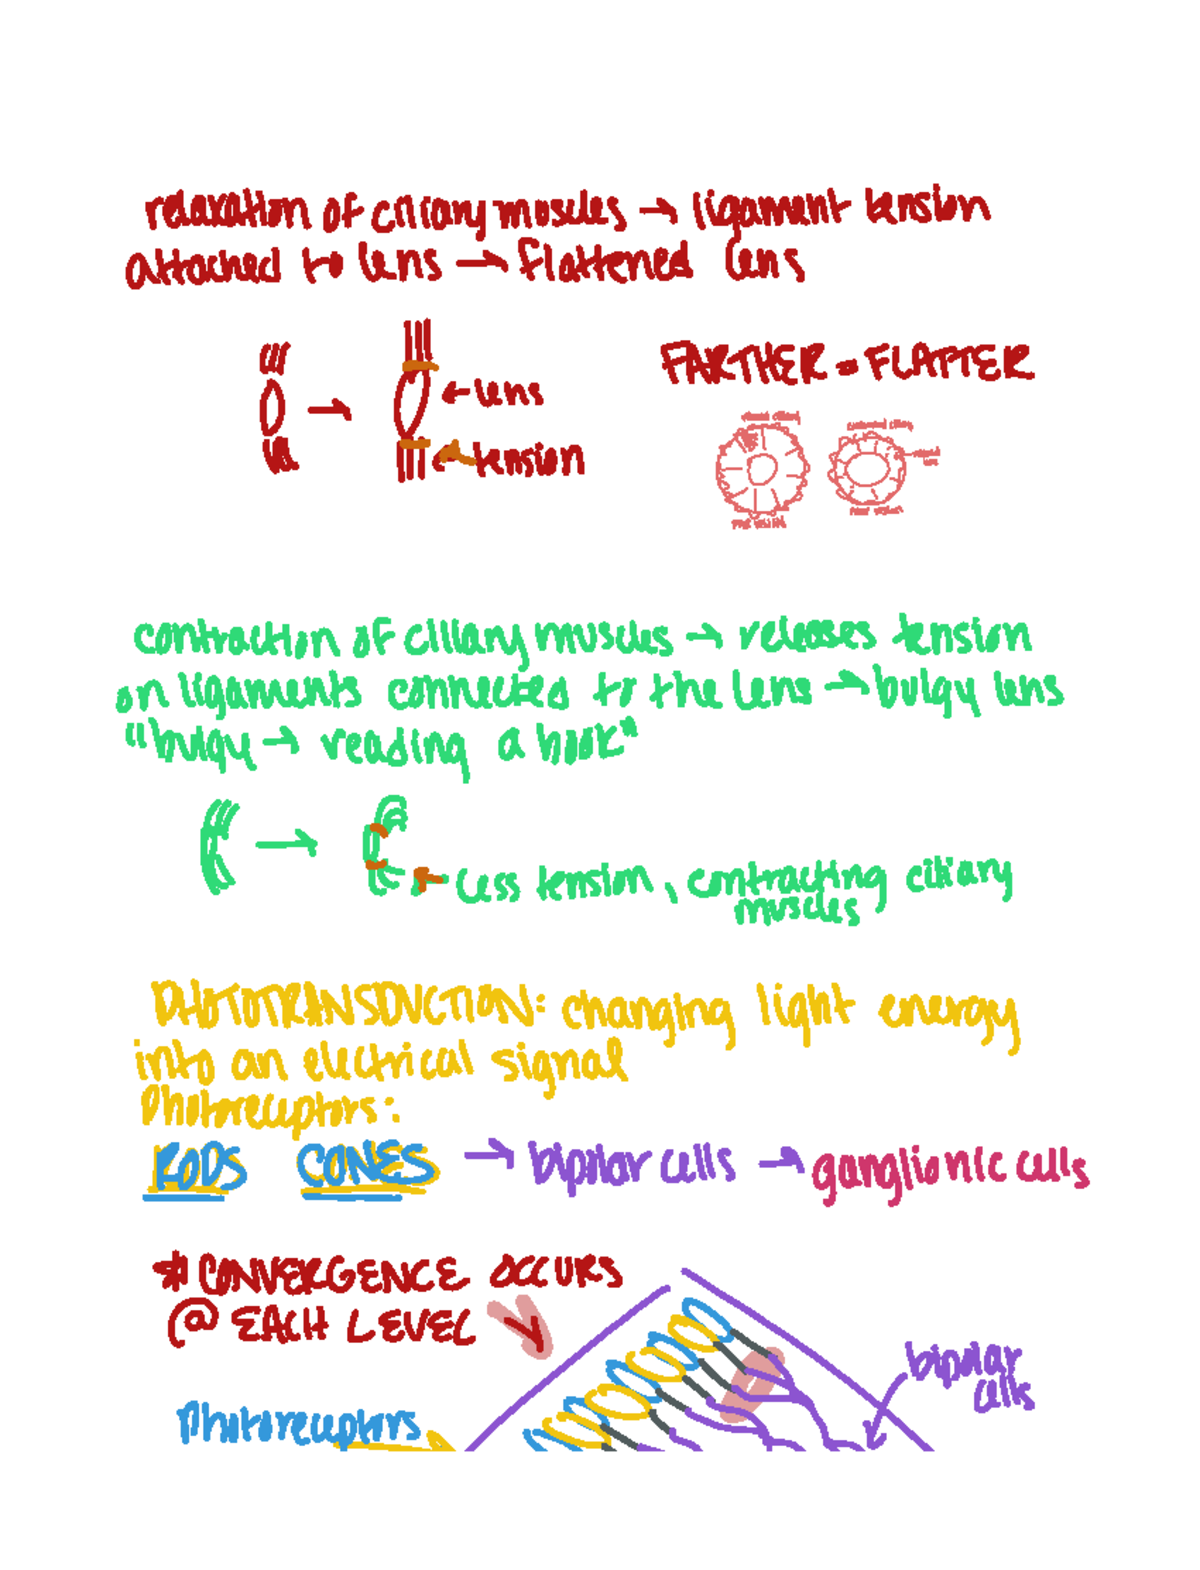 relaxation of ciliary muscles → ligament tension
attached to lens → flattened lens
← lens
← tension
FARTHER = FLATTER
relaxed ciliary
far vision
contracted ciliary
near vision
contraction of ciliary muscles → releases tension
on ligaments connected to the lens → bulgy lens
"bulgy → reading a book"
← Less tension, contracting ciliary
muscles
PHOTOTRANSDUCTION: changing light energy
into an electrical signal
Photoreceptors:
RODS CONES → bipolar cells → ganglionic cells
* CONVERGENCE OCCURS
@ EACH LEVEL
bipolar
cells
Photoreceptors